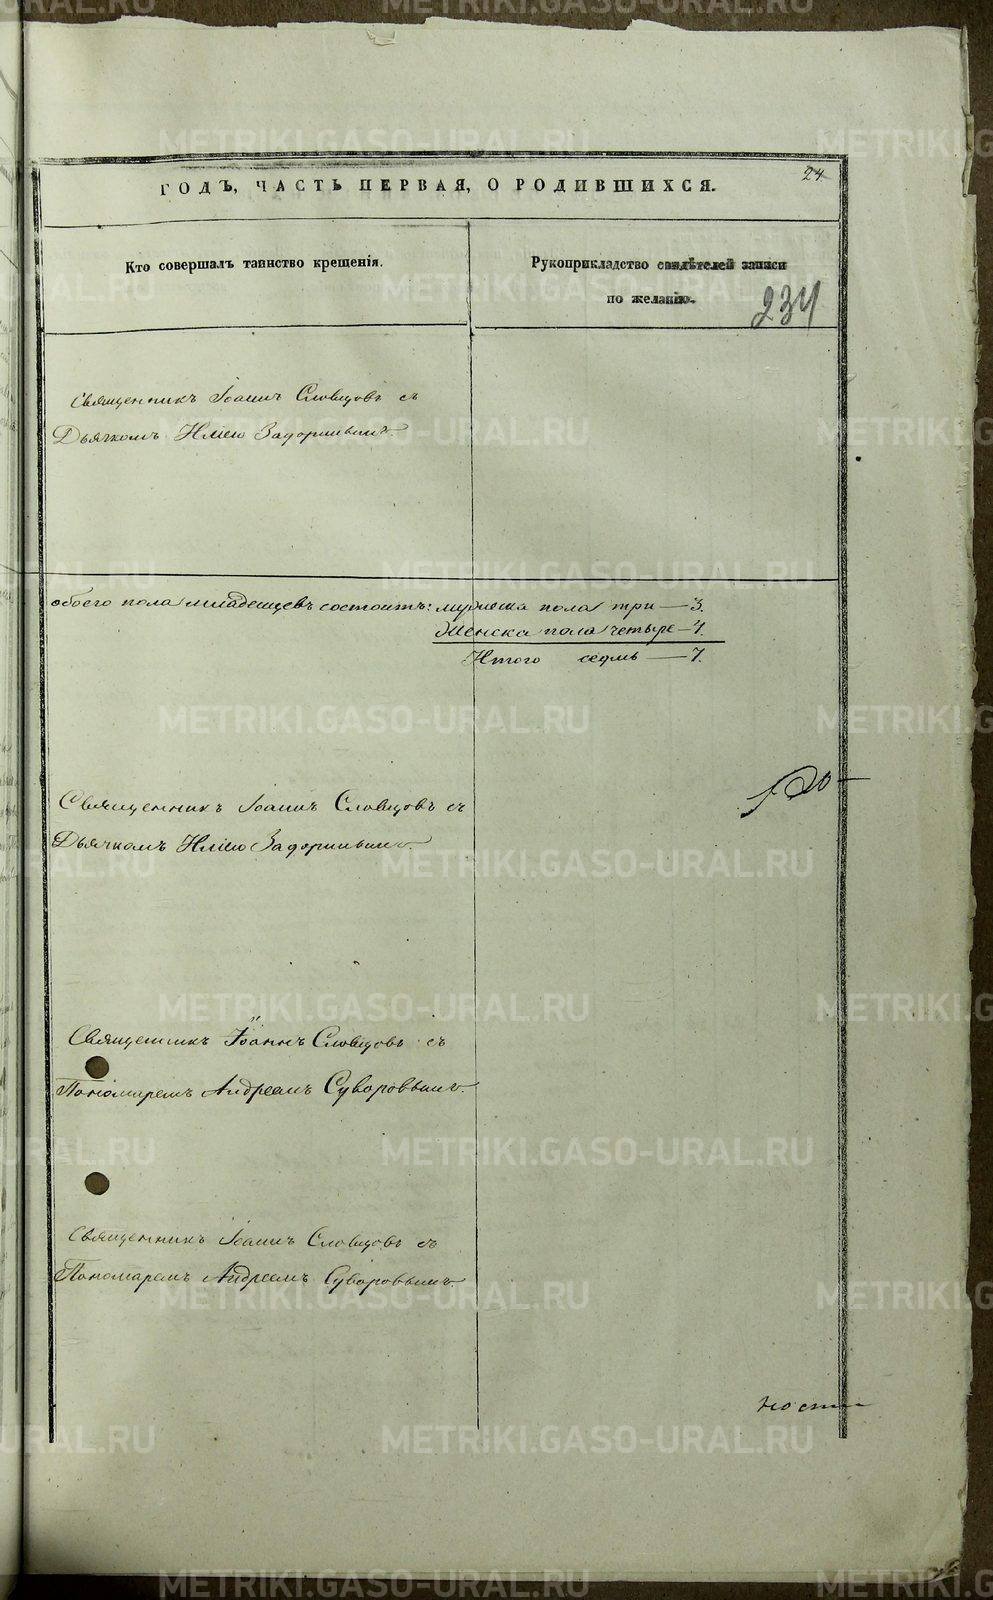 24
ГОДЪ, ЧАСТЬ ПЕРВАЯ, О РОДИВШИХСЯ.
Кто совершалъ таинство крещенія.
Рукоприкладство свидѣтелей записи
по желанію.
234
Священникъ Іоаннъ Словцовъ съ
Дьячкомъ Иліею Задоринымъ.
обоего пола младенцевъ состоитъ: мужеска пола три — 3.
Женска пола четыре — 4.
Итого седмь — 7.
Священникъ Іоаннъ Словцовъ съ
Дьячкомъ Иліею Задоринымъ.
Священникъ Іоаннъ Словцовъ съ
Пономаремъ Андреемъ Суворовымъ.
Священникъ Іоаннъ Словцовъ съ
Пономаремъ Андреемъ Суворовымъ.
METRIKI.GASO-URAL.RU